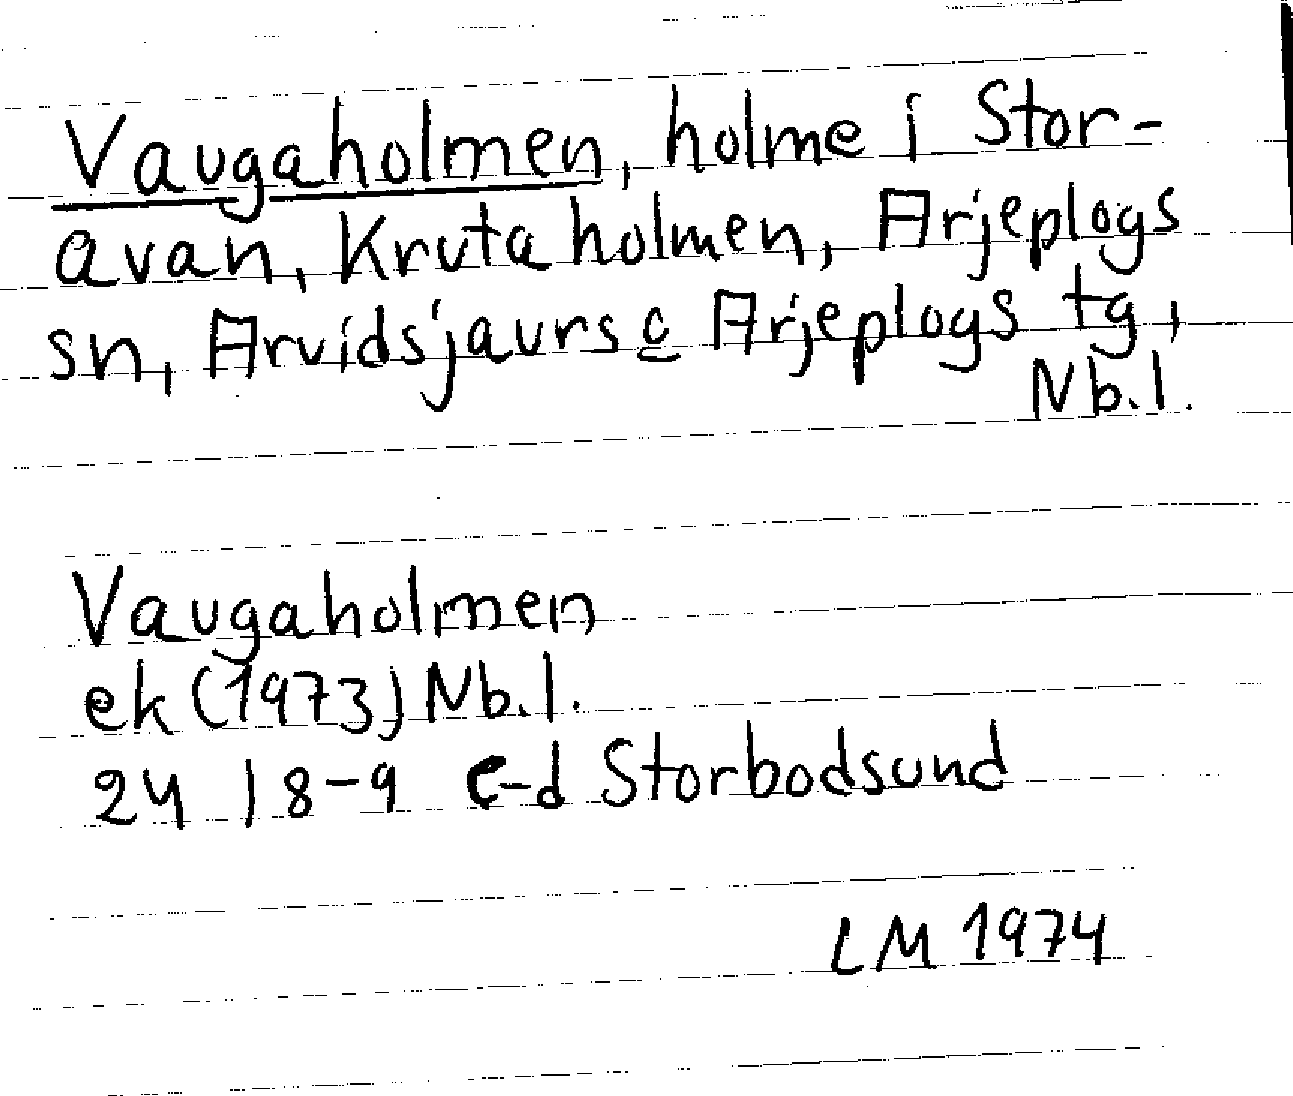 Vaugaholmen, holme i Stor-
avan, Krutaholmen, Arjeplogs
sn, Arvidsjaurs o Arjeplogs tg,
Nb.l.
Vaugaholmen
ek (1973) Nb.l.
24 I 8-9 c-d Storbodsund
LM 1974